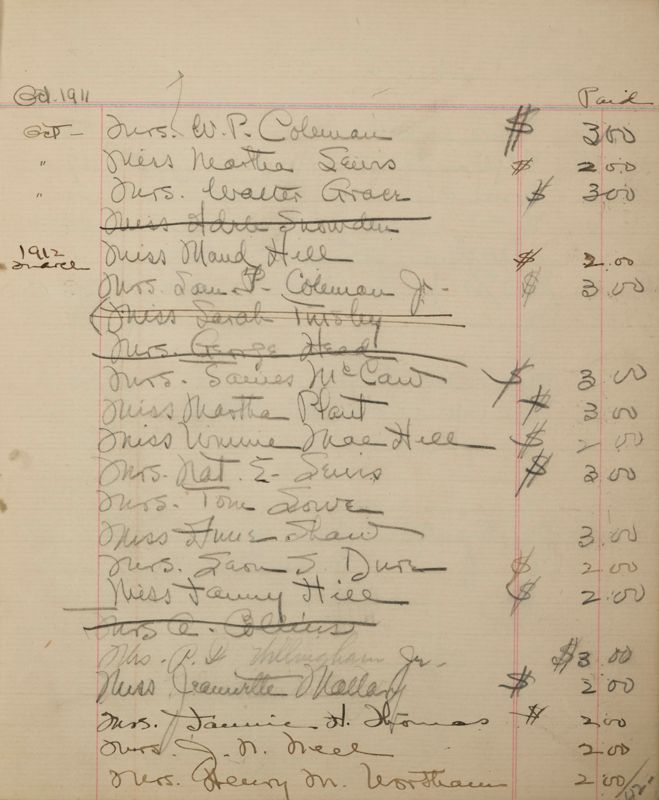 Oct. 1911 Paid
Oct - Mrs. W. P. Coleman $ 3.00
" Miss Martha Lewis $ 2.00
" Mrs. Walter Grace $ 3.00
Miss Adele Snowden
1912
March Miss Maud Hill $ 2.00
Mrs. Sam. P. Coleman Jr. $ 3.00
Miss Sarah Tinsley
Mrs. George Head
Mrs. James McCaw $ 3.00
Miss Martha Plant $ 3.00
Miss Winnie Mae Hill $ 2.00
Mrs. Nat. E. Lewis $ 3.00
Mrs. Tom Lowe
Miss Shaw 3.00
Mrs. Leon S. Dure $ 2.00
Miss Fanny Hill $ 2.00
Mrs C. Collins
Mrs. P. D. Willingham Jr. $ 3.00
Miss Jeannette Mallary $ 2.00
Mrs. Fannie H. Thomas $ 2.00
Mrs. J. N. Neel 2.00
Mrs. Henry M. Wortham 2.00